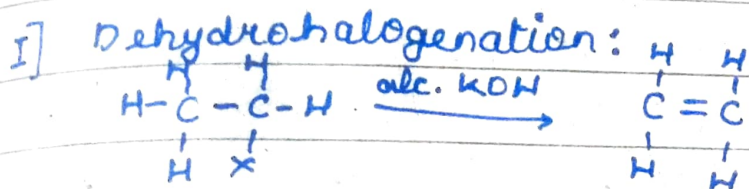 I] Dehydrohalogenation:
H H H H
H-C-C-H alc. KOH C=C
H X H H